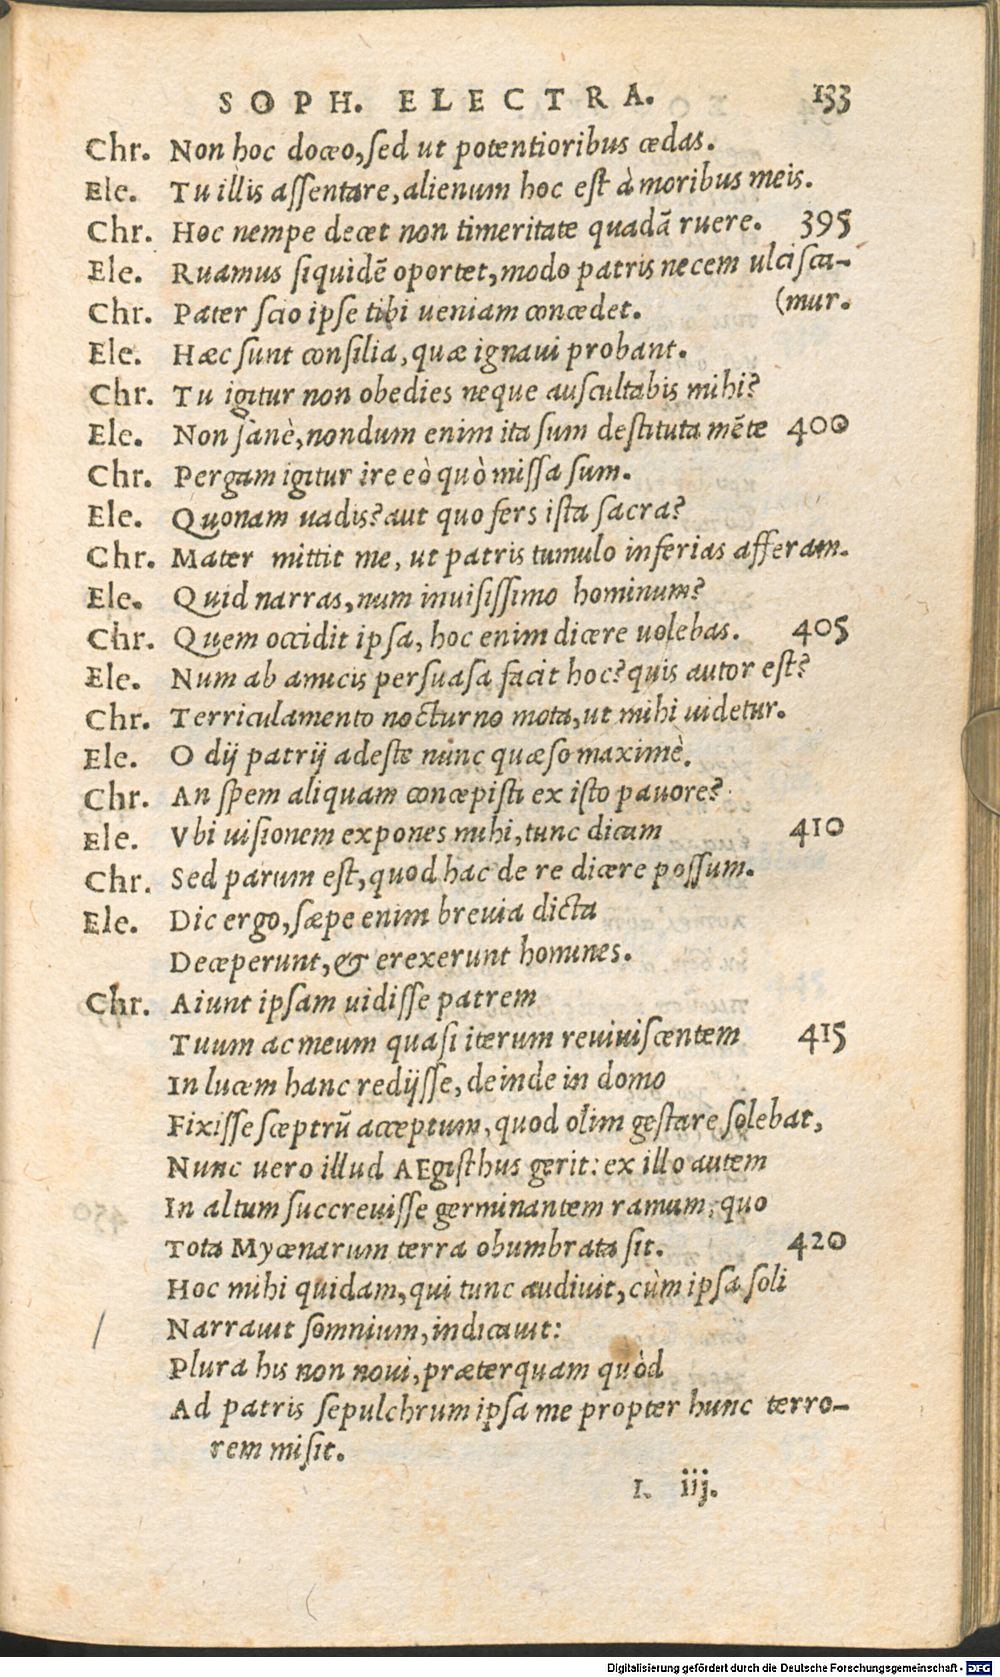 SOPH. ELECTRA. 133
Chr. Non hoc doceo, sed ut potentioribus cedas.
Ele. Tu illis assentare, alienum hoc est à moribus meis.
Chr. Hoc nempe decet non timeritate quadã ruere. 395
Ele. Ruamus siquidẽ oportet, modo patris necem ulcisca-
Chr. Pater scio ipse tibi veniam concedet. (mur.
Ele. Hæc sunt consilia, quæ ignavi probant.
Chr. Tu igitur non obedies neque auscultabis mihi?
Ele. Non sanè, nondum enim ita sum destituta mẽte 400
Chr. Pergam igitur ire eò quò missa sum.
Ele. Quonam uadis? aut quo fers ista sacra?
Chr. Mater mittit me, ut patris tumulo inferias afferam.
Ele. Quid narras, num invisissimo hominum?
Chr. Quem occidit ipsa, hoc enim dicere uolebas. 405
Ele. Num ab amicis persuasa facit hoc? quis autor est?
Chr. Terriculamento nocturno mota, ut mihi uidetur.
Ele. O dij patrij adeste nunc quæso maximè.
Chr. An spem aliquam concepisti ex isto pavore?
Ele. Vbi uisionem expones mihi, tunc dicam 410
Chr. Sed parum est, quod hac de re dicere possum.
Ele. Dic ergo, sæpe enim brevia dicta
Deceperunt, & erexerunt homines.
Chr. Aiunt ipsam uidisse patrem
Tuum ac meum quasi iterum reviviscentem 415
In lucem hanc redijsse, deinde in domo
Fixisse sceptrũ acceptum, quod olim gestare solebat,
Nunc vero illud AEgisthus gerit: ex illo autem
In altum succrevisse germinantem ramum, quo
Tota Mycenarum terra obumbrata sit. 420
Hoc mihi quidam, qui tunc audivit, cùm ipsa soli
Narravit somnium, indicavit:
Plura his non novi, præterquam quòd
Ad patris sepulchrum ipsa me propter hunc terro-
rem misit.
I. iij.
Digitalisierung gefördert durch die Deutsche Forschungsgemeinschaft - DFG